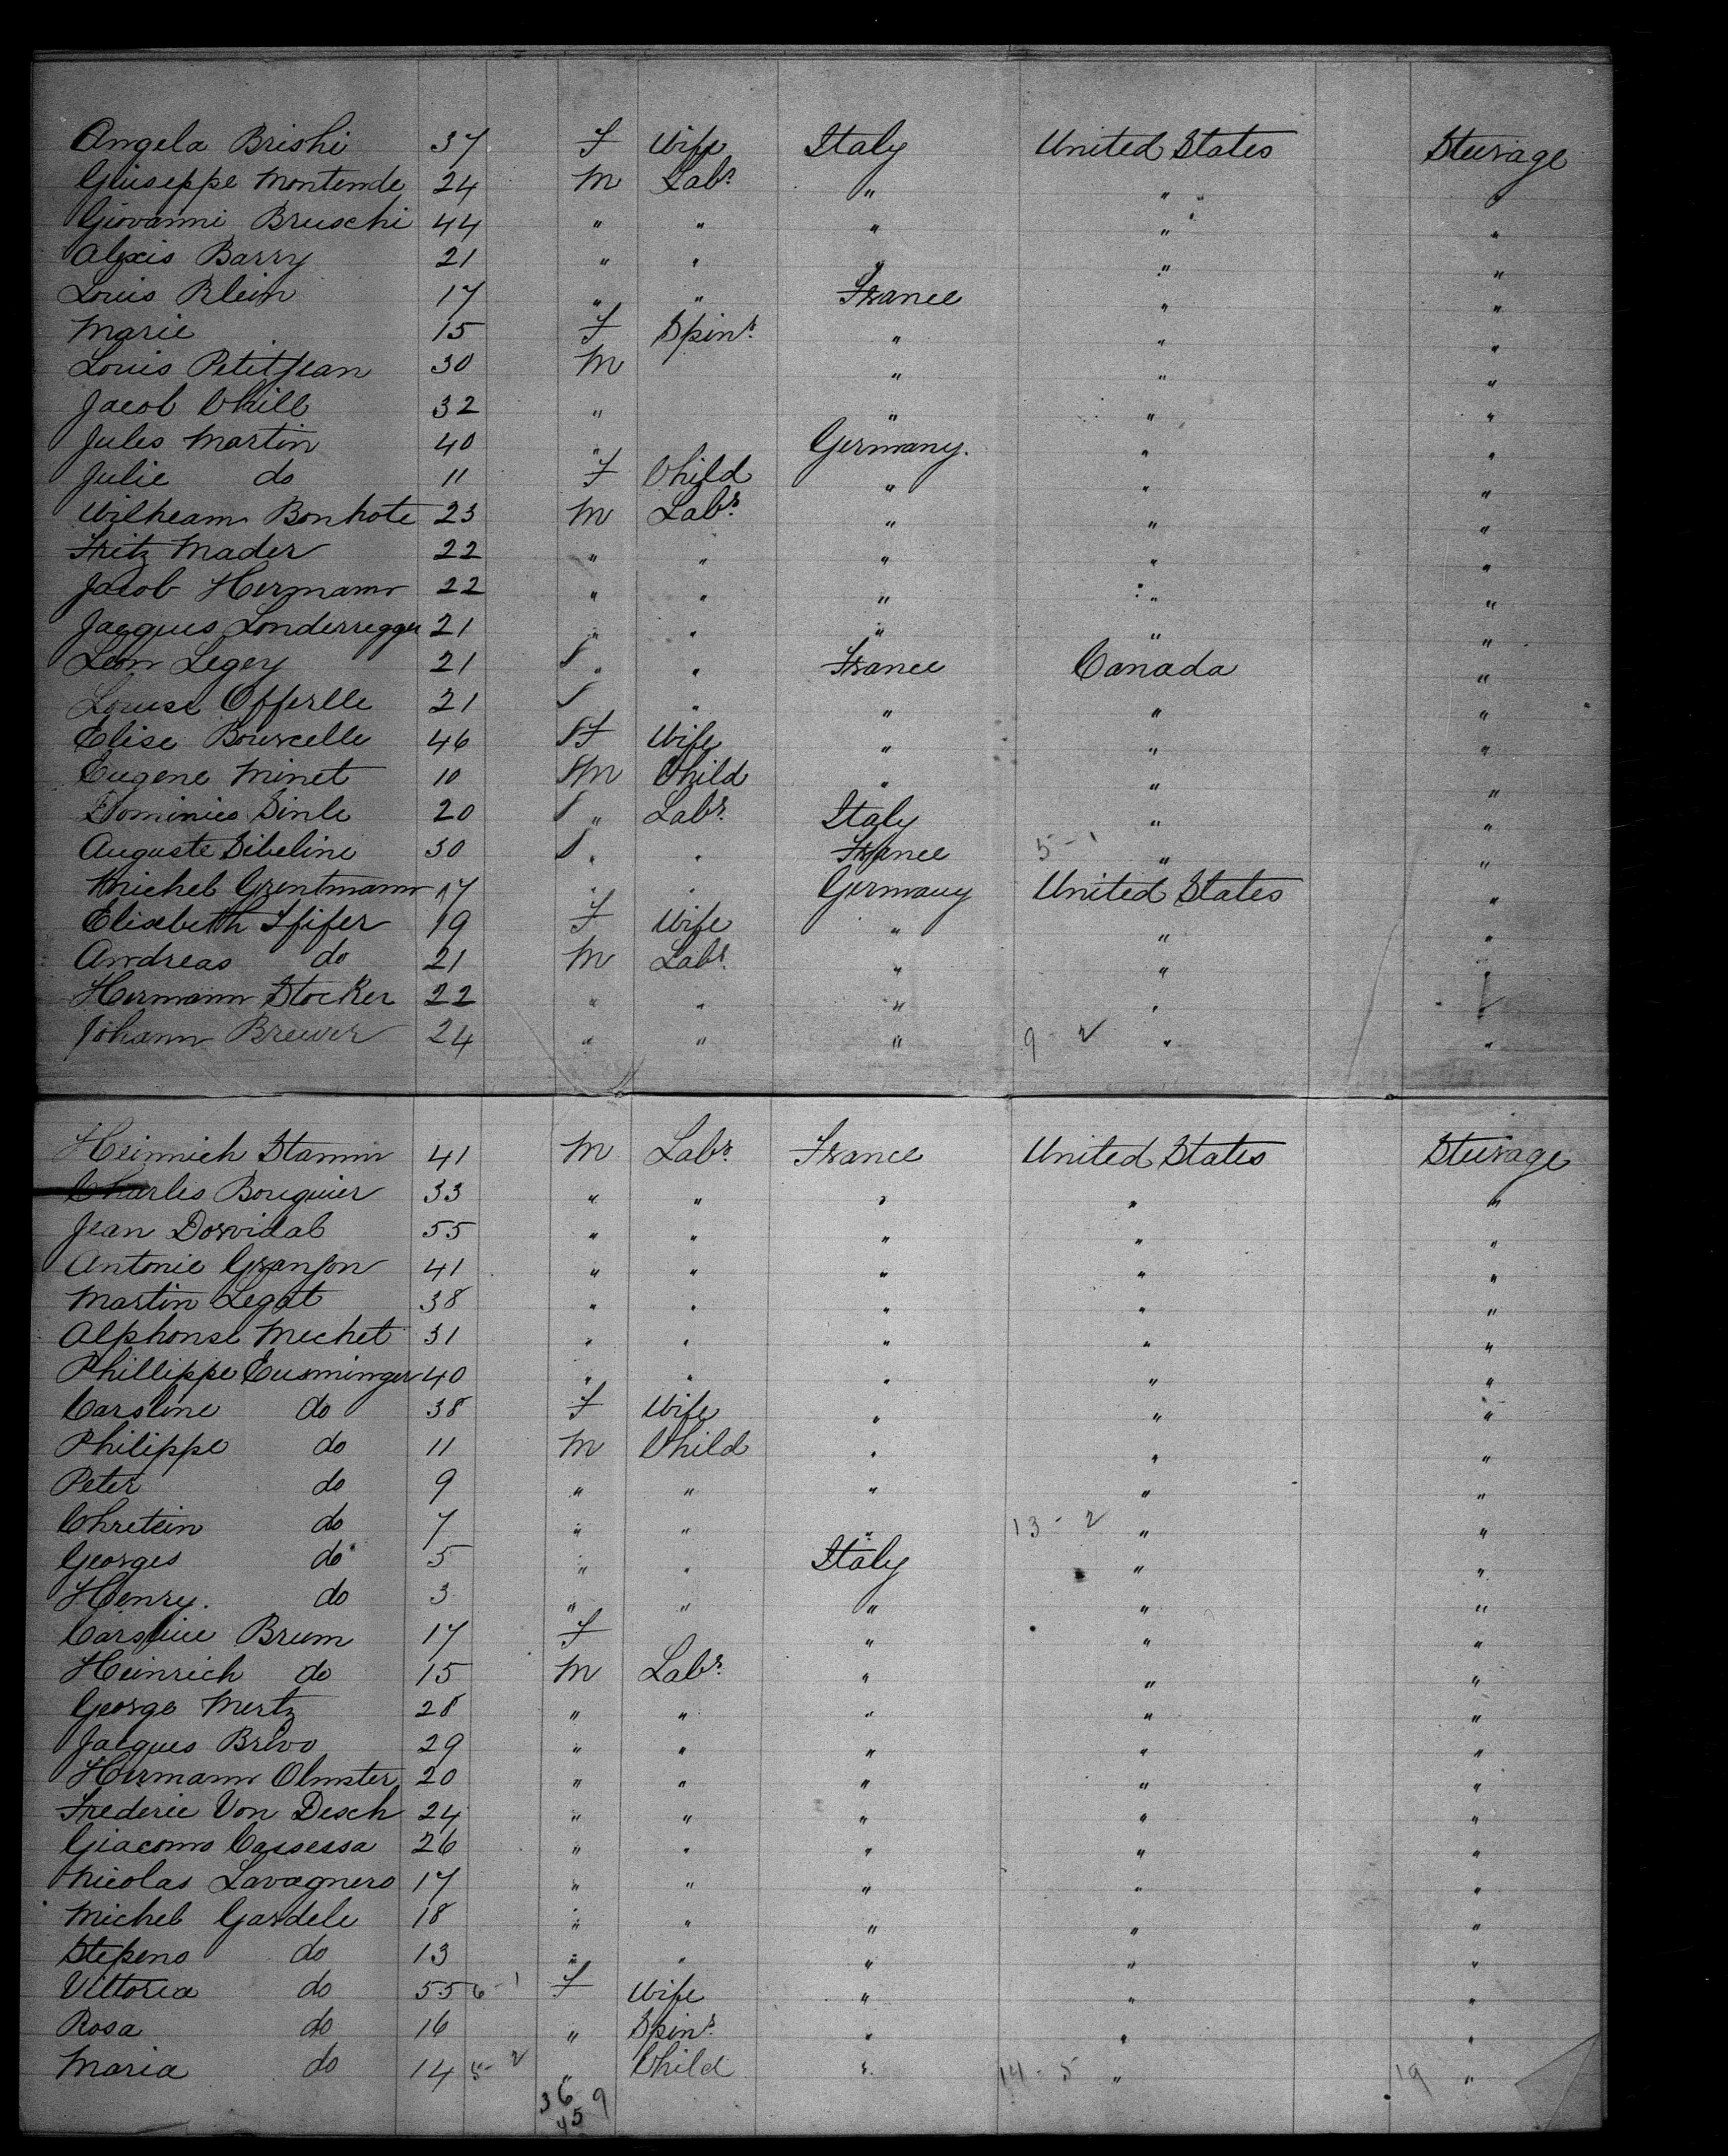 Angela Brishi 37 F Wife Italy United States Steerage
Giuseppe Montende 24 M Labr. " " "
Giovanni Bruschi 44 " " " " "
Alexis Barry 21 " " " " "
Louis Klein 17 " " France " "
Marie 15 F Spinr. " " "
Louis Petitjean 30 M " " "
Jacob Chill 32 " " " "
Jules Martin 40 " Germany. " "
Julie do 11 F Child " " "
Wilheam Bonhote 23 M Labr. " " "
Fritz Mader 22 " " " " "
Jacob Hermann 22 " " " " "
Jacques Londerregger 21 " " " " "
Leon Legey 21 " " France Canada "
Louise Offerlle 21 " " " "
Elise Bourcelle 46 F Wife " " "
Eugene Minet 10 M Child " " "
Dominico Sinle 20 " Labr. Italy " "
Auguste Sibeline 30 " " France 5 - 1 " "
Michel Grentmann 17 " " Germany United States "
Elisabeth Pfifer 19 F Wife " " "
Andreas do 21 M Labr. " " "
Hermann Stocker 22 " " " " "
Johann Brewer 24 " " " 9 - 2 " "
Heinnich Stamm 41 M Labr. France United States Steerage
Charles Bouguier 33 " " " " "
Jean Dorvidal 55 " " " " "
Antonie Granjon 41 " " " " "
Martin Legat 38 " " " " "
Alphonse Mechet 31 " " " " "
Phillippe Eusminger 40 " " " " "
Caroline do 38 F Wife " " "
Philippe do 11 M Child " " "
Peter do 9 " " " " "
Chretein do 7 " " " 13 - 2 " "
Georges do 5 " " Italy " "
Henry. do 3 " " " " "
Caroline Brum 17 F " " "
Heinrich do 15 M Labr. " " "
George Mertz 28 " " " " "
Jacques Brivo 29 " " " " "
Hermann Olmster 20 " " " " "
Frederic Von Desch 24 " " " " "
Giacomo Cassessa 26 " " " " "
Nicolas Lavagnero 17 " " " " "
Michel Gardele 18 " " " " "
Stepeno do 13 " " " " "
Vittoria do 55 6 - 1 F Wife " " "
Rosa do 16 " Spinr. " " "
Maria do 14 5 - 2 " Child " 14 - 5 " 19 "
36 9
45